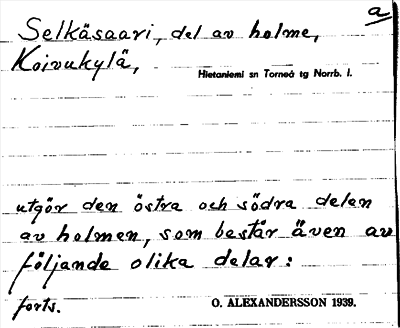 a
Selkäsaari, del av holme,
Koivukylä,
Hietaniemi sn Torneå tg Norrb. l.
utgör den östra och södra delen
av holmen, som består även av
följande olika delar:
forts.
O. ALEXANDERSSON 1939.